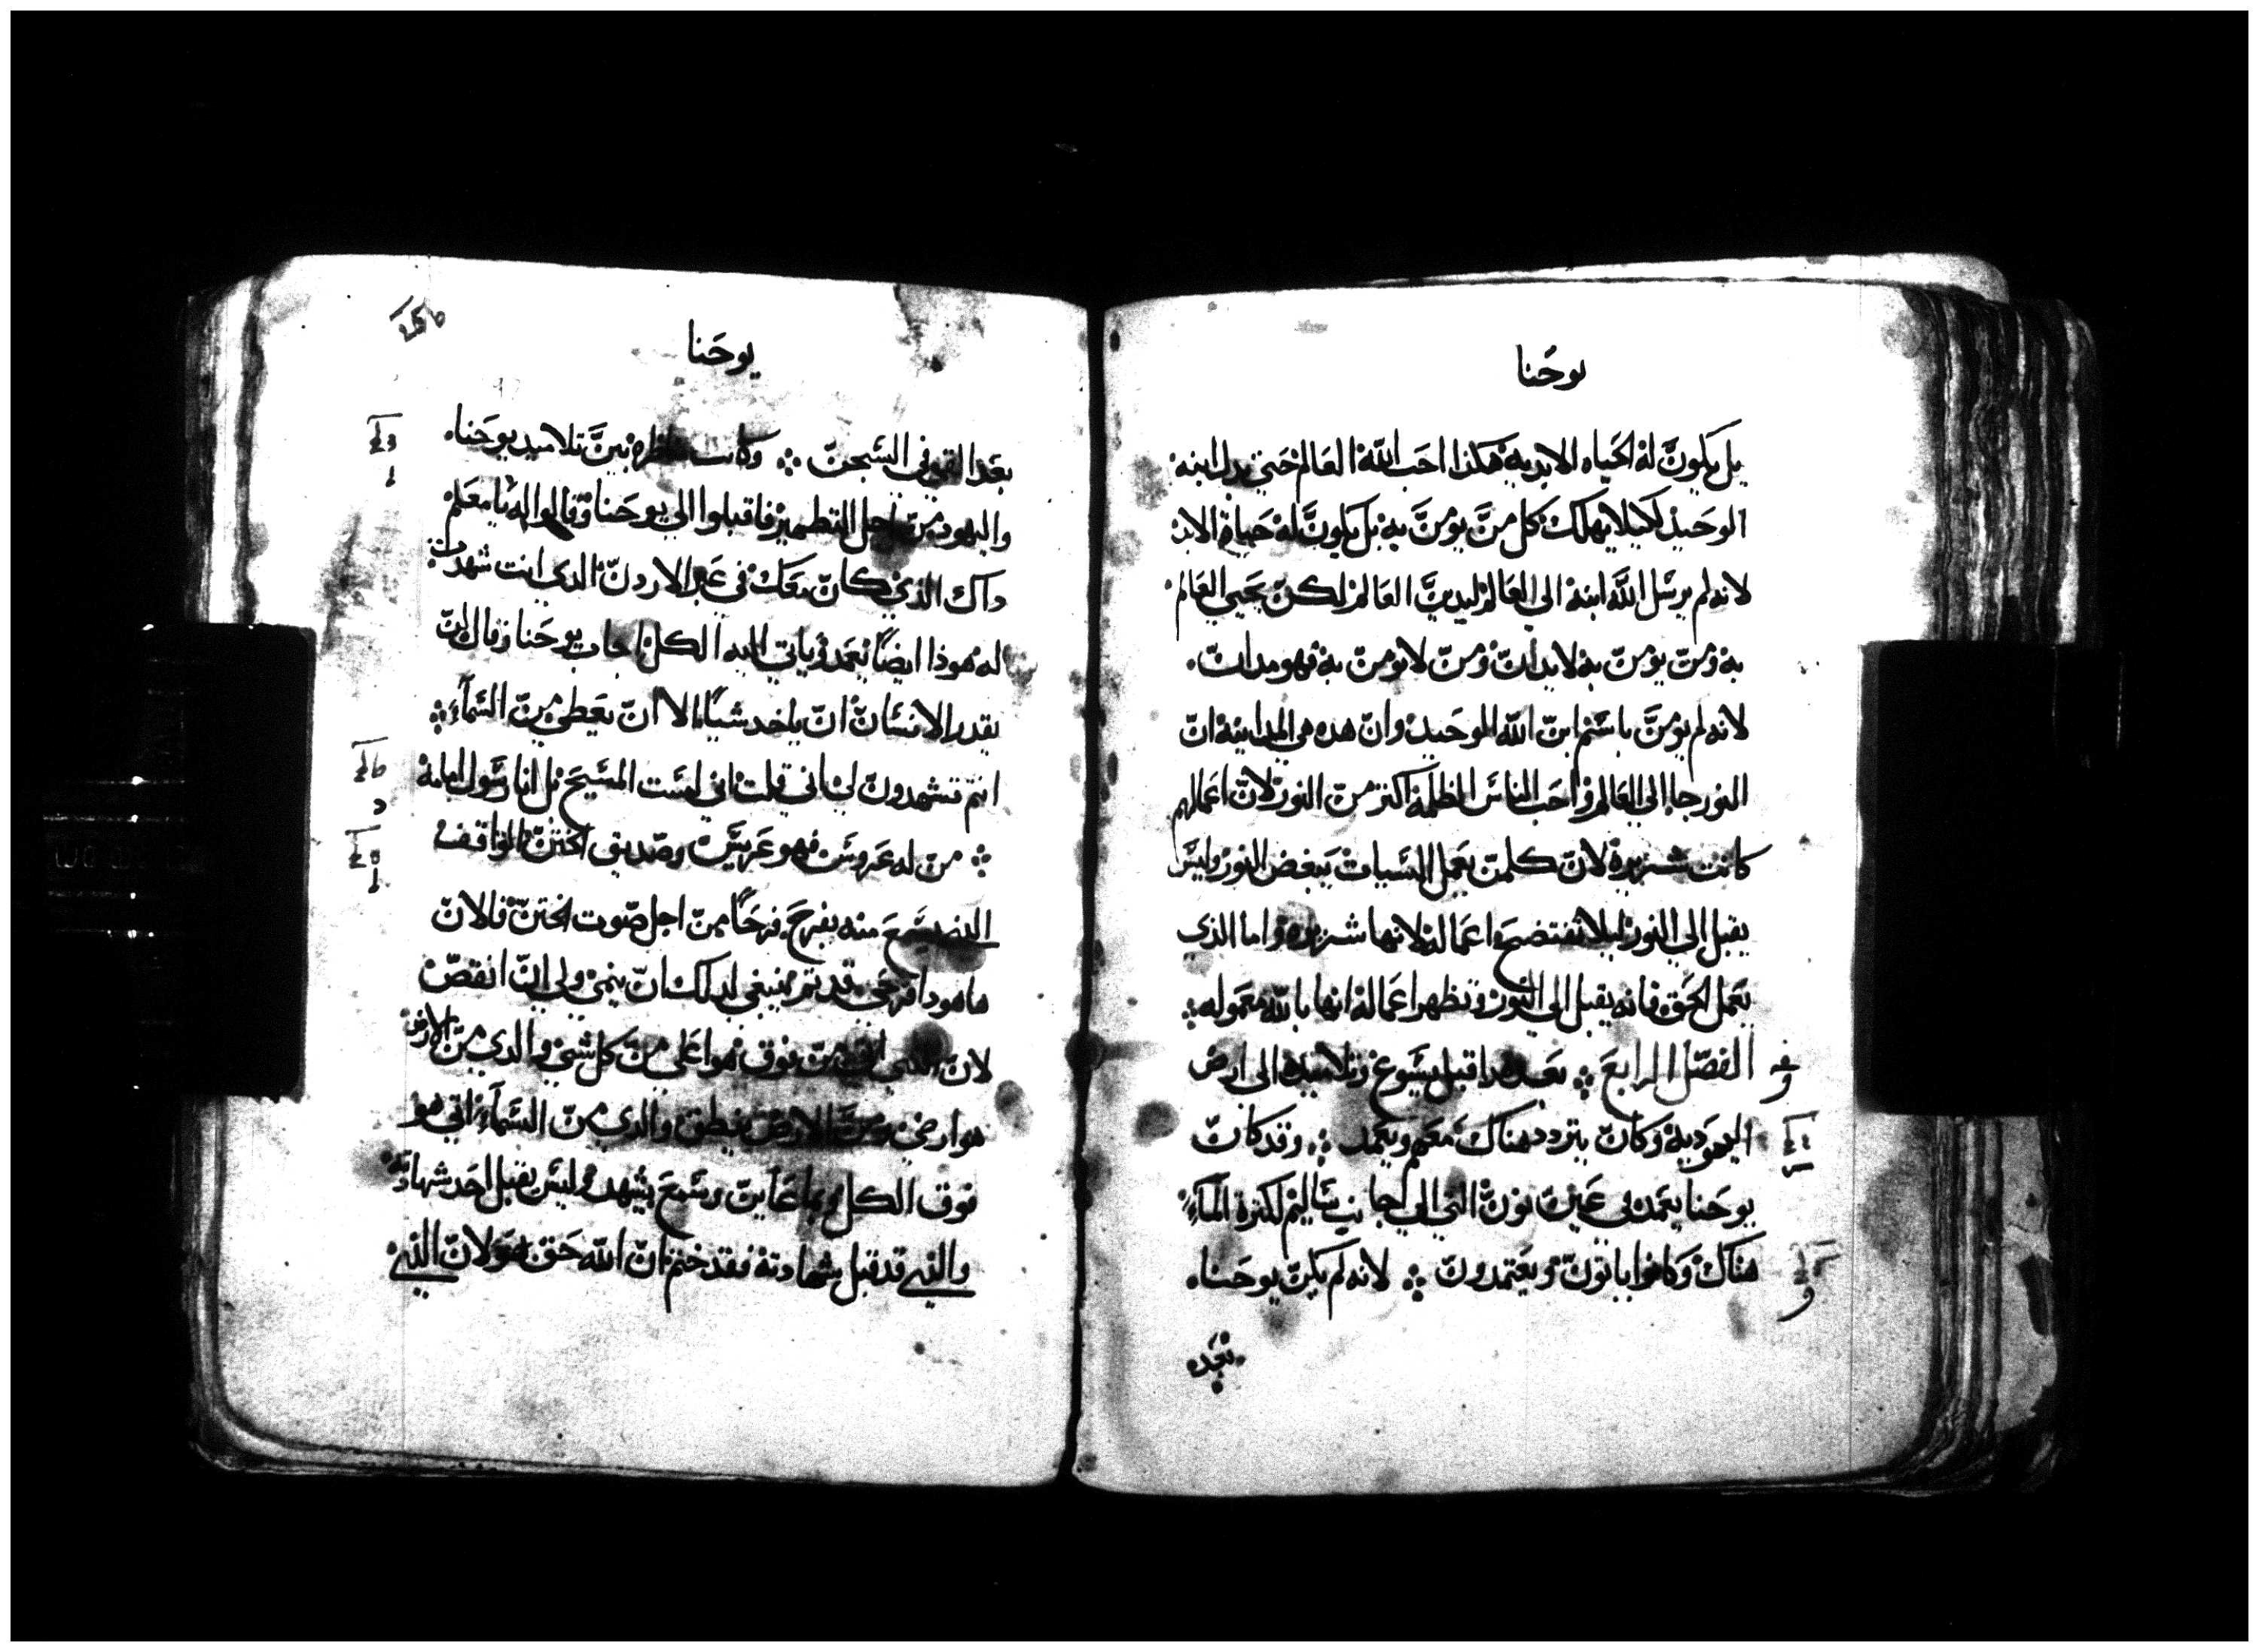 يوحنا
بل يكون له الحياه الابديه هكذا احب الله العالم حتي بدل ابنه
الوحيد لكيلا يهلك كل من يومن به بل يكون له حياة الابد
لانه لم يرسل الله ابنه الي العالم ليدين العالم لكن يحيي العالم
به ومن يومن به لا يدان ومن لا يومن به فهو مدان
لانه لم يومن باسم ابن الله الوحيد وان هده هي المداينه ان
النور جا الي العالم واحب الناس الظلمه اكتر من النور لان اعمالهم
كانت شريرة لان كلمن يعمل السيات يبغض النور وليس
يقبل الي النور ليلا تفتضح اعماله لانها شريره واما الذي
يعمل الحق فانه يقبل الي النور وتظهر اعماله انها بالله معموله
الفصل الرابع بعد هدا اقبل يسوع وتلاميده الى ارض
اليهودية وكان يتردد هناك معهم ويعمد وقد كان
يوحنا يعمد في عين نون التي الي جانب ساليم لكترة المآء
هناك وكانوا ياتون ويعتمدون لانه لم يكن يوحنا
بعد
يوحنا
بعد القي في السجن وكانت مناظره بين تلاميد يوحنا
واليهود من اجل التطهير فاقبلوا الي يوحنا وقالوا له يا معلم
داك الذي كان معك في عبر الاردن الدي انت شهدت
له هوذا ايضًا يعمد وياتي اليه الكل اجاب يوحنا وقال لن
يقدر الانسان ان ياخد شيًا الا ان يعطي من السمآء
انتم تشهدون لي اني قلت اني لست المسيح بل انا رسول امامه
من له عروس فهو عريس وصديق الختن الواقف
الذي يسمع منه يفرح فرحًا من اجل صوت الختن فالان
ها هودا فرحي قد تم ينبغي لدلك ان ينمي ولي ان انقص
لان الذي من فوق هو اعلي من كل شي والدي من الارض
هو ارضي ومن الارض ينطق والدي من السمآء اتي هو
فوق الكل وبما عاين وسمع يشهد وليس يقبل احد شهادته
والذي قد قبل شهادته فقد ختم ان الله حق هو لان الذي